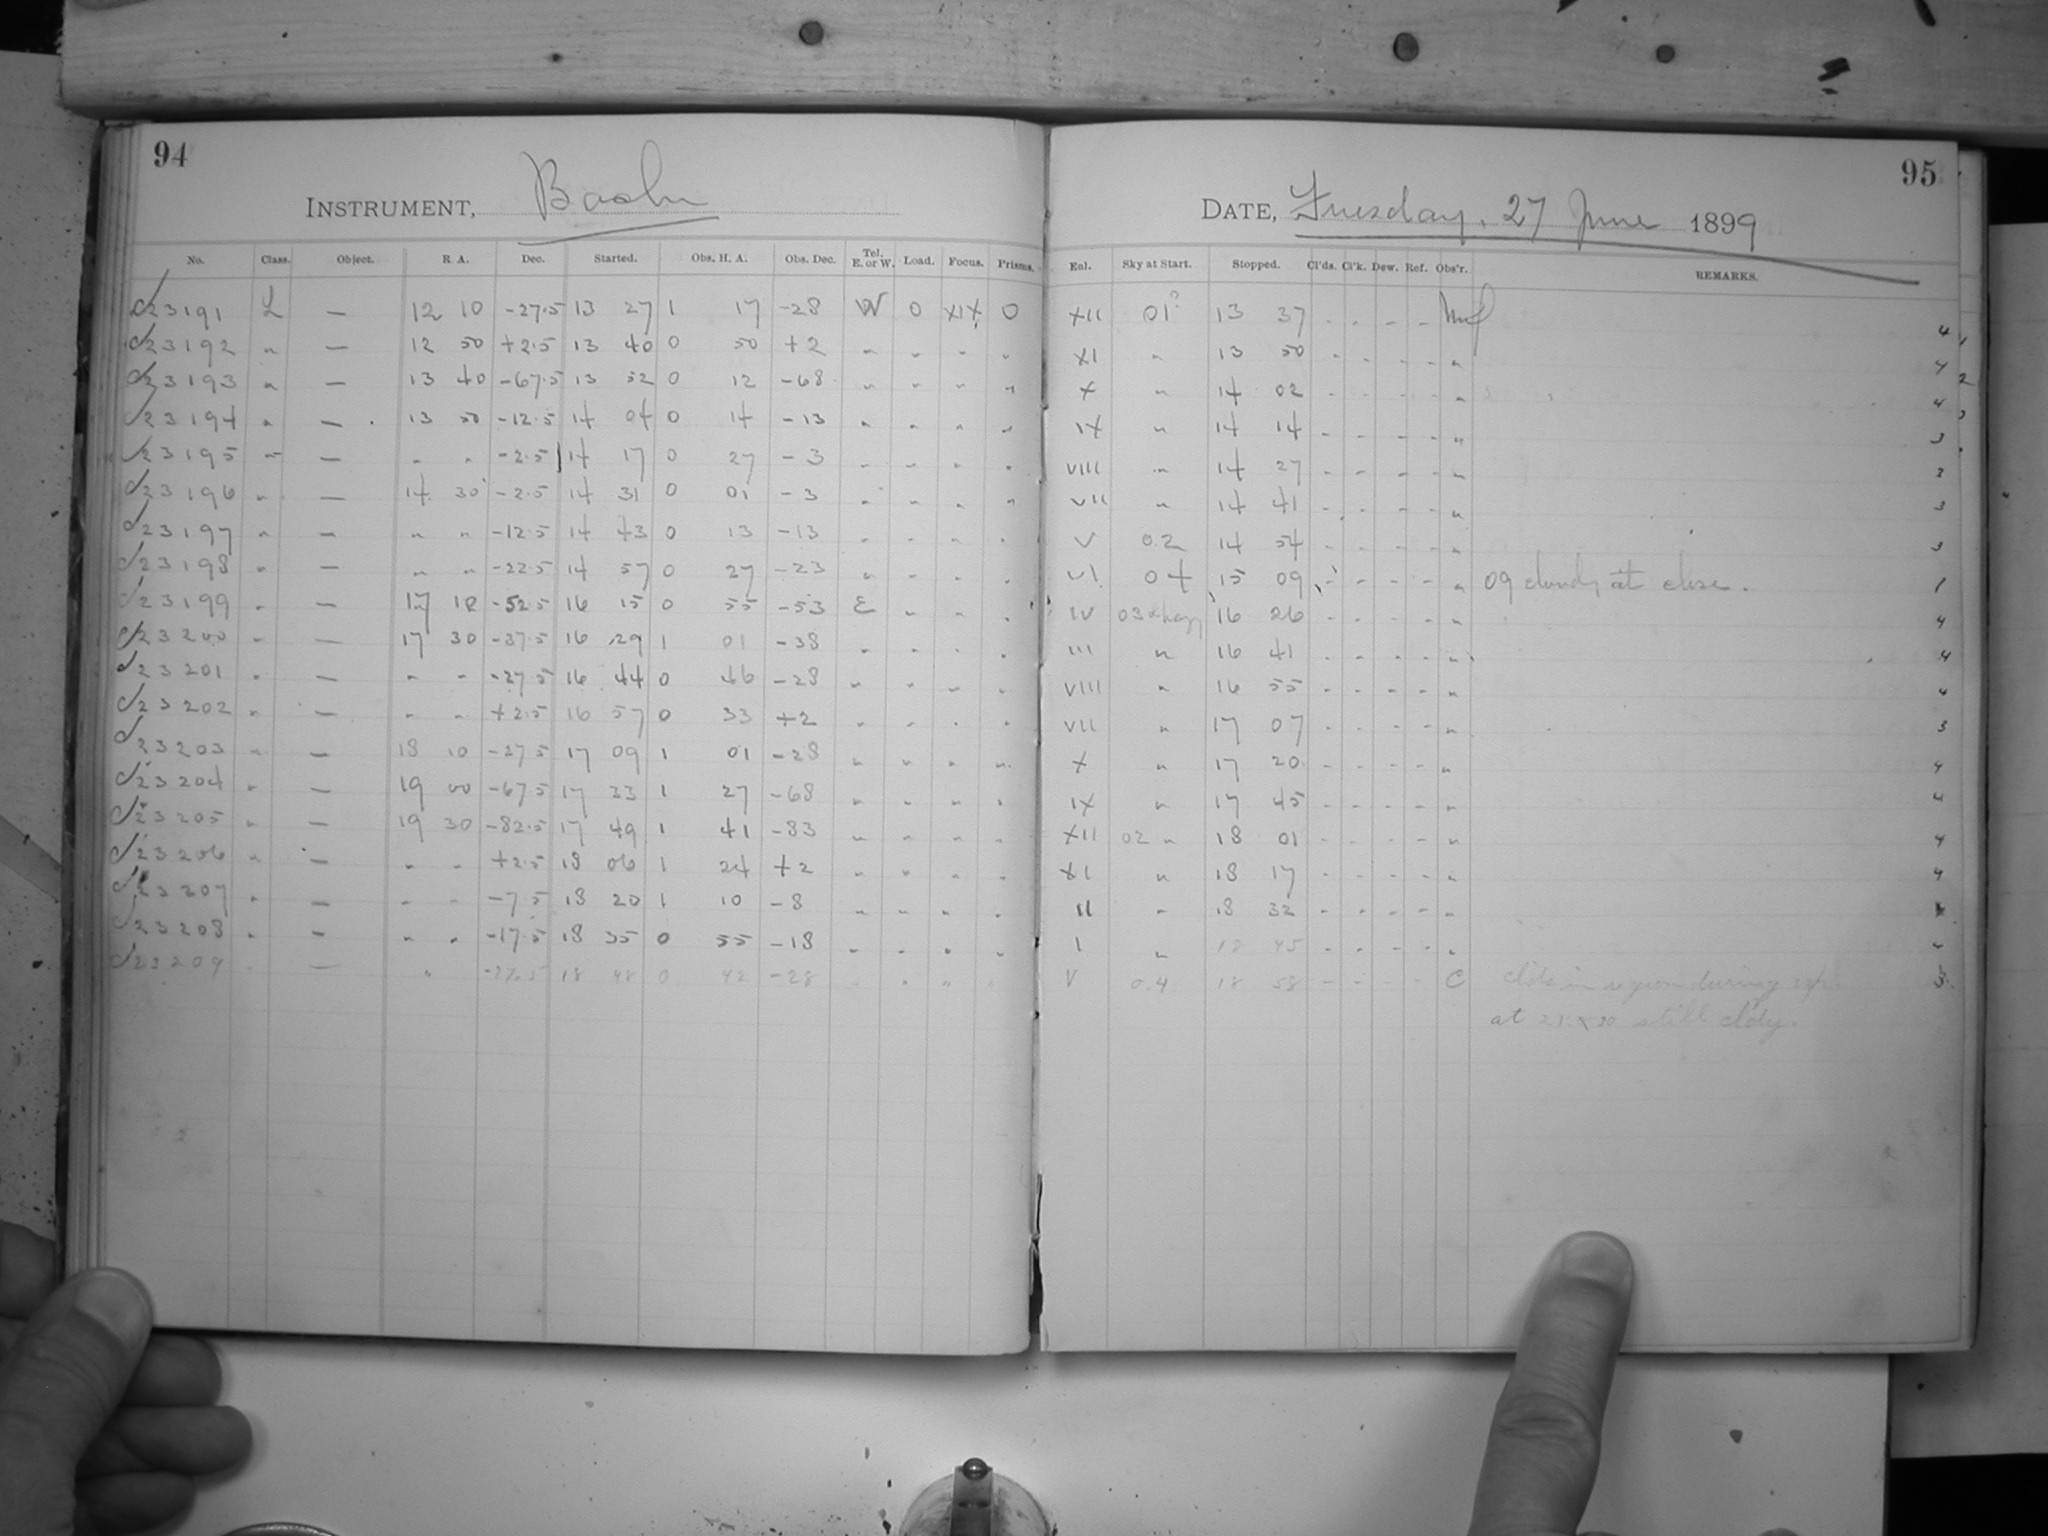 94
INSTRUMENT, Bache
No. Class. Object. R. A. Dec. Started. Obs. H. A. Obs. Dec. Tel. E. or W. Load. Focus. Prisms.
23191 L — 12 10 -27.5 13 27 1 17 -28 W 0 XIX 0
23192 " — 12 50 +2.5 13 40 0 50 +2 " " " "
23193 " — 13 40 -67.5 13 52 0 12 -68 " " " "
23194 " — 13 50 -12.5 14 04 0 14 -13 " " " "
23195 " — " " -2.5 14 17 0 27 -3 " " " "
23196 " — 14 30 -2.5 14 31 0 01 -3 " " " "
23197 " — " " -12.5 14 43 0 13 -13 " " " "
23198 " — " " -22.5 14 57 0 27 -23 " " " "
23199 " — 17 10 -52.5 16 15 0 55 -53 E " " "
23200 " — 17 30 -37.5 16 29 1 01 -38 " " " "
23201 " — " " -27.5 16 44 0 46 -28 " " " "
23202 " — " " +2.5 16 57 0 33 +2 " " " "
23203 " — 18 10 -27.5 17 09 1 01 -28 " " " "
23204 " — 19 00 -67.5 17 33 1 27 -68 " " " "
23205 " — 19 30 -82.5 17 49 1 41 -83 " " " "
23206 " — " " +2.5 18 06 1 24 +2 " " " "
23207 " — " " -7.5 18 20 1 10 -8 " " " "
23208 " — " " -17.5 18 35 0 55 -18 " " " "
23209 — " 18 48 0 42 -28 " " "
95
DATE, Tuesday, 27 June 1899
Eal. Sky at Start. Stopped. Cl'ds. Cl'k. Dew. Ref. Obs'r. REMARKS.
XII 01? 13 37 - - - - 4
XI " 13 50 - - - - " 4
X " 14 02 - - - - " 4
IX " 14 14 - - - - " 3
VIII " 14 27 - - - - " 3
VII " 14 41 - - - - " 3
V 0.2 14 54 - - - - " 3
VI 04 15 09 - - - - " 09 cloudy at close. 1
IV 03 & hazy 16 26 - - - - " 4
III " 16 41 - - - - " 4
VIII " 16 55 - - - - " 4
VII " 17 07 - - - - " 3
X " 17 20 - - - - " 4
IX " 17 45 - - - - " 4
XII 02 " 18 01 - - - - " 4
XI " 18 17 - - - - " 4
II " 18 32 - - - - "
I " 18 45 - - - - "
V 0.4 18 58 - - - - C clds in region during exp. 3
at still cldy.